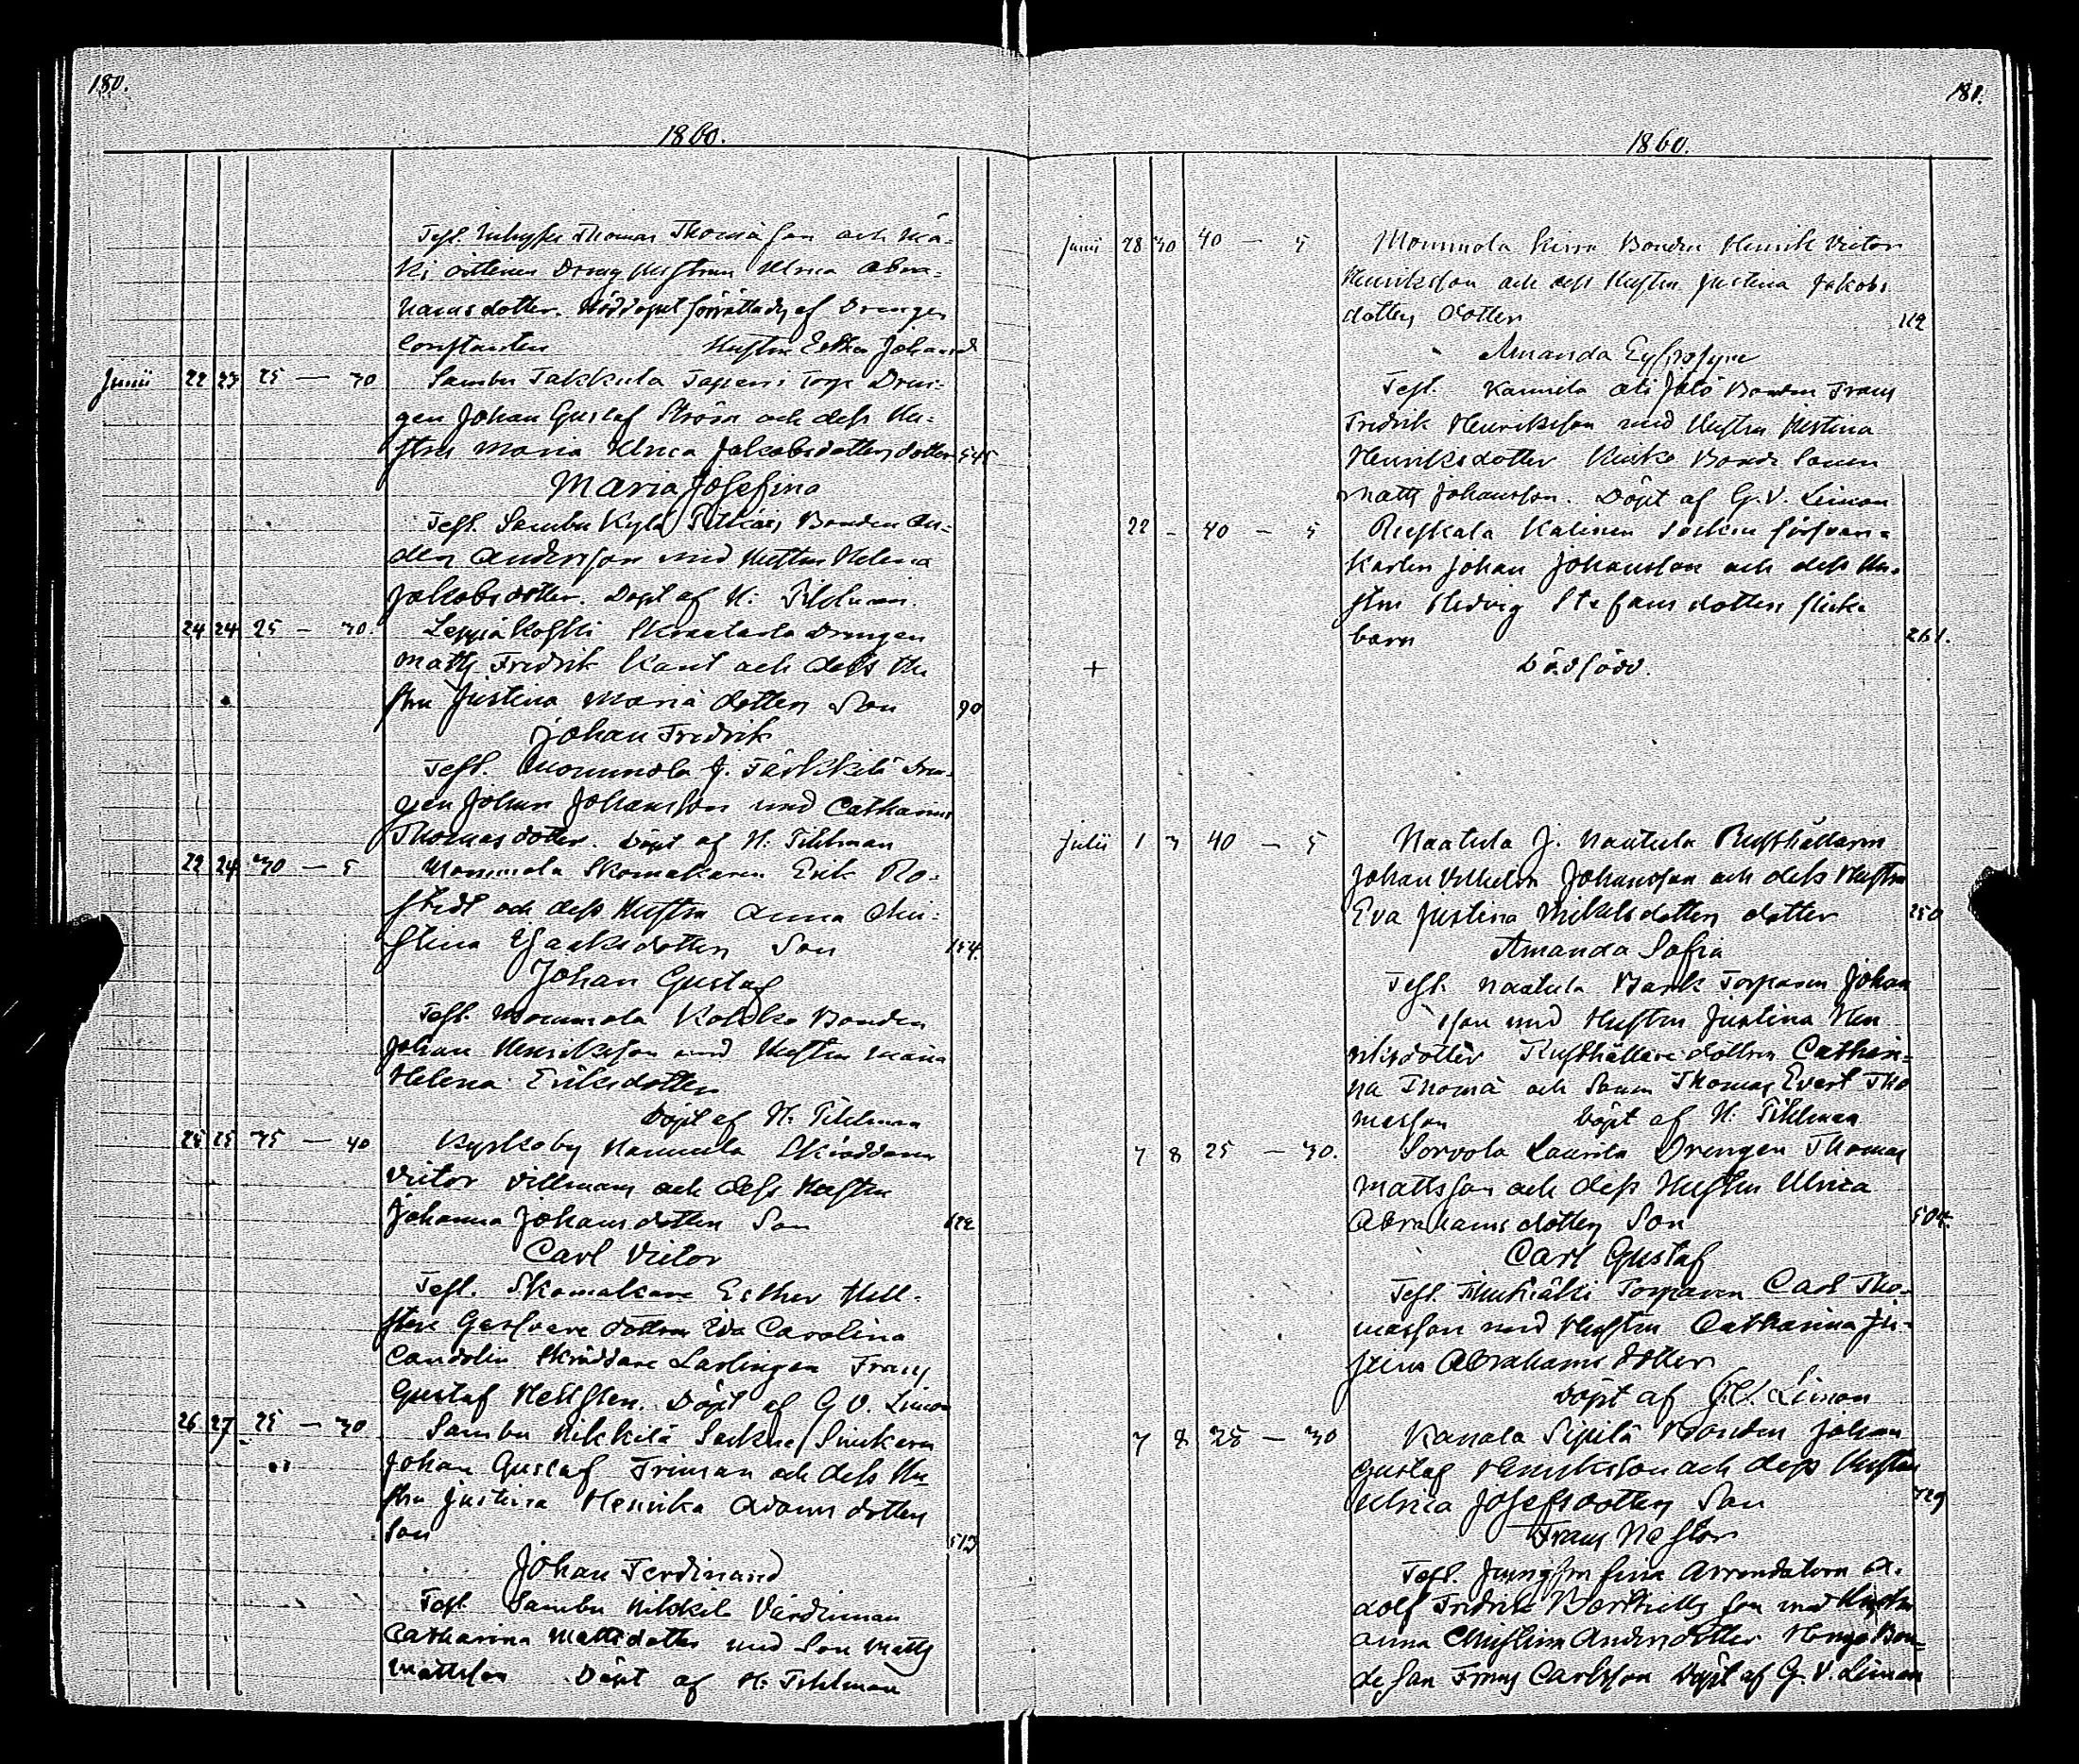 180.
1860.
Test. Thomas Thomasson och Mä-
ki Dräng Hustrun Ulrica Abra-
hamsdotter. Nöddopet förrättades af Drängen
Constantin Hustru Esther Johansd
Junii 22 23 25 — 30 Sambu Takkula Tapani Torp Drän-
gen Johan Gustaf Ström och dess Hu-
stru Maria Ulrica Jakobsdotters dotter 545
Maria Josefina
Test. Sambu Kylä Pitkäis Bonden An-
ders Andersson med Hustru Helena
Jakobsdotter. Döpt af H. Pihlman.
24 24 25 — 30. Leppäkoski Drängen
Matts Fredrik Kant och dess Hu
stru Justina Mariä dotters Son 90
Johan Fredrik
Test. Mommola J. Tärkkilä Drän-
gen Johan Johansson med Catharina
Thomasdotter. Döpt af H. Pihlman
22 24 30 — 5 Mommola Skomakaren Erik Ro-
stedt och dess Hustru Anna Chri-
stina Isaksdotters Son 154.
Johan Gustaf
Test. Mommola Kolkko Bonden
Johan Henriksson med Hustru Maria
Helena Eriksdotter
Döpt af H. Pihlman
25 25 35 — 40 Kyrkoby Nammela Skräddaren
Victor Villman och dess Hustru
Johanna Johansdotters Son 622
Carl Victor
Test. Skomakare Esther Hell-
sten Garfvare dottren Eva Carolina
Candolin Skräddare Lärlingen Frans
Gustaf Hellsten. Döpt af G. V. Limon
26 27 25 — 30 Sambu Nikkilä Socken Snickaren
Johan Gustaf Friman och dess Hu-
stru Justina Henrika Adams dotters
Son 513
Johan Ferdinand
Test. Sambu Nikkilä Värdinnan
Catharina Mattsdotter med Son Matts
Mattsson Döpt af H. Pihlman
181.
1860.
Junii 28 30 40 — 5 Mommola Kirra Bonden Henrik Victor
Henriksson och dess Hustru Justina Jakobs
dotters dotter 112
Amanda Eufrosyne
Test. Kannila Ali Jutö Bonden Frans
Fredrik Henriksson med Hustru Kristina
Henriksdotter Bonde Sonen
Matts Johansson. Döpt af G. V. Limon
22 - 40 — 5 Ruskala Kalinen Socken försvars-
karlen Johan Johansson och dess Hu-
stru Hedvig Stefans dotters flicke
barn 261.
+ Dödfödd.
Julii 1 3 40 — 5 Naatula J. Naatula Rusthållaren
Johan Vilhelm Johansson och dess Hustru
Eva Justina Mikelsdotters dotter 250
Amanda Sofia
Test. Naatula Torparen Johan
sson med Hustru Justina Hen
riksdotter Rusthållare dottren Cathari-
na Thomä och Sonen Thomas Evert Tho
masson Döpt af H. Pihlman
7 8 25 — 30. Sorvola Laurila Drängen Thomas
Mattsson och dess Hustru Ulrica
Abrahamsdotters Son 504.
Carl Gustaf
Test. Torparen Carl Tho-
masson med Hustru Catharina Ju-
stina Abrahams dotter
Döpt af G. V. Limon
7 8 25 — 30 Kanala Sipilä Bonden Johan
Gustaf Henriksson och dess Hustru
Ulrica Josefsdotters Son 329
Frans Nestor
Test. Arrendatorn A-
dolf Fredrik Berthilsson med Hustru
Anna Christina Andersdotter Bon-
de Son Frans Carlsson Döpt af G. V. Limon